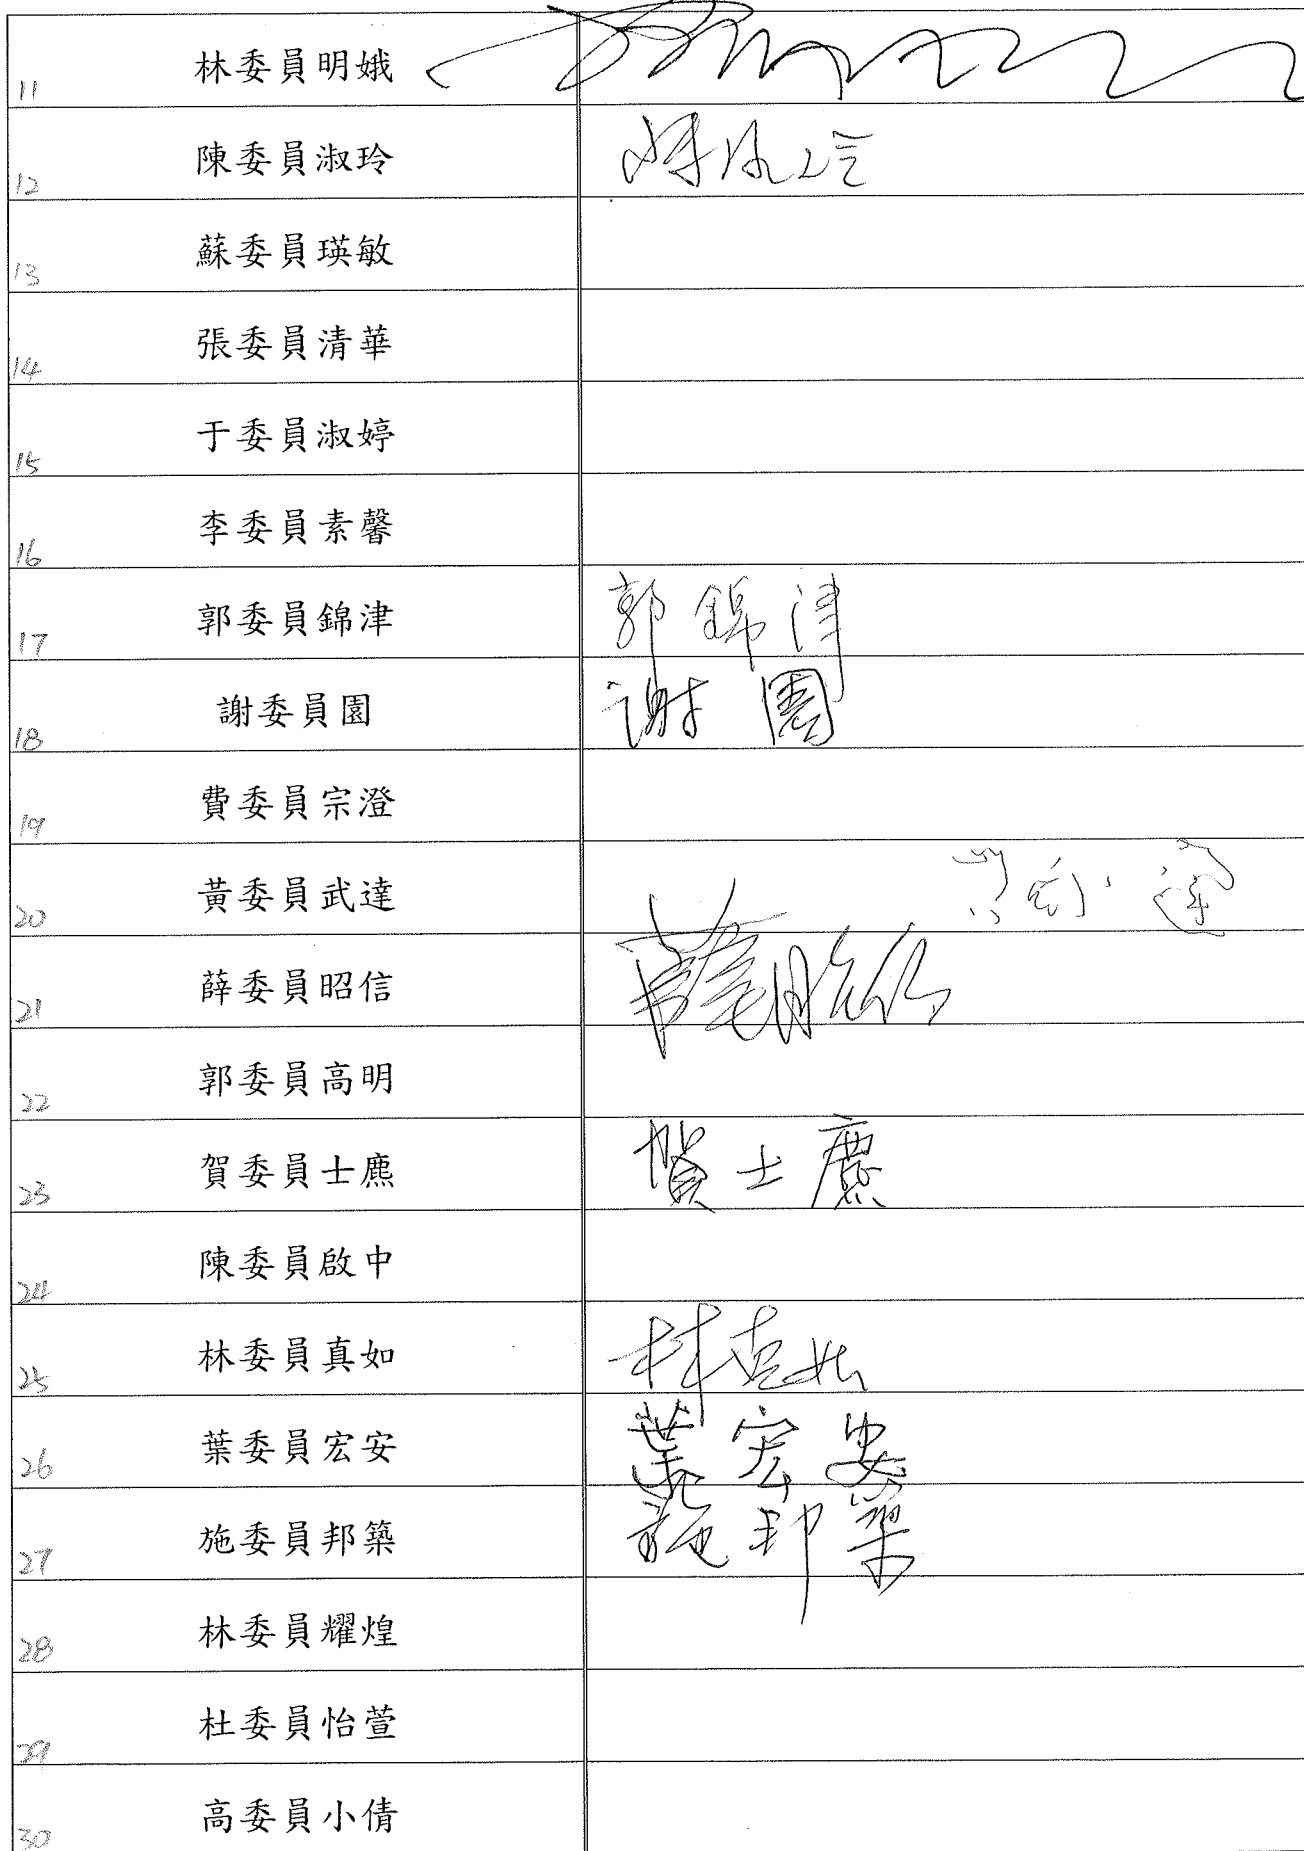 11 林委員明娥
12 陳委員淑玲 陳淑玲
13 蘇委員瑛敏
14 張委員清華
15 于委員淑婷
16 李委員素馨
17 郭委員錦津 郭錦津
18 謝委員園 謝園
19 費委員宗澄
20 黃委員武達 黃武達
21 薛委員昭信 薛昭信
22 郭委員高明
23 賀委員士麃 賀士麃
24 陳委員啟中
25 林委員真如 林真如
26 葉委員宏安 葉宏安
27 施委員邦築 施邦築
28 林委員耀煌
29 杜委員怡萱
30 高委員小倩